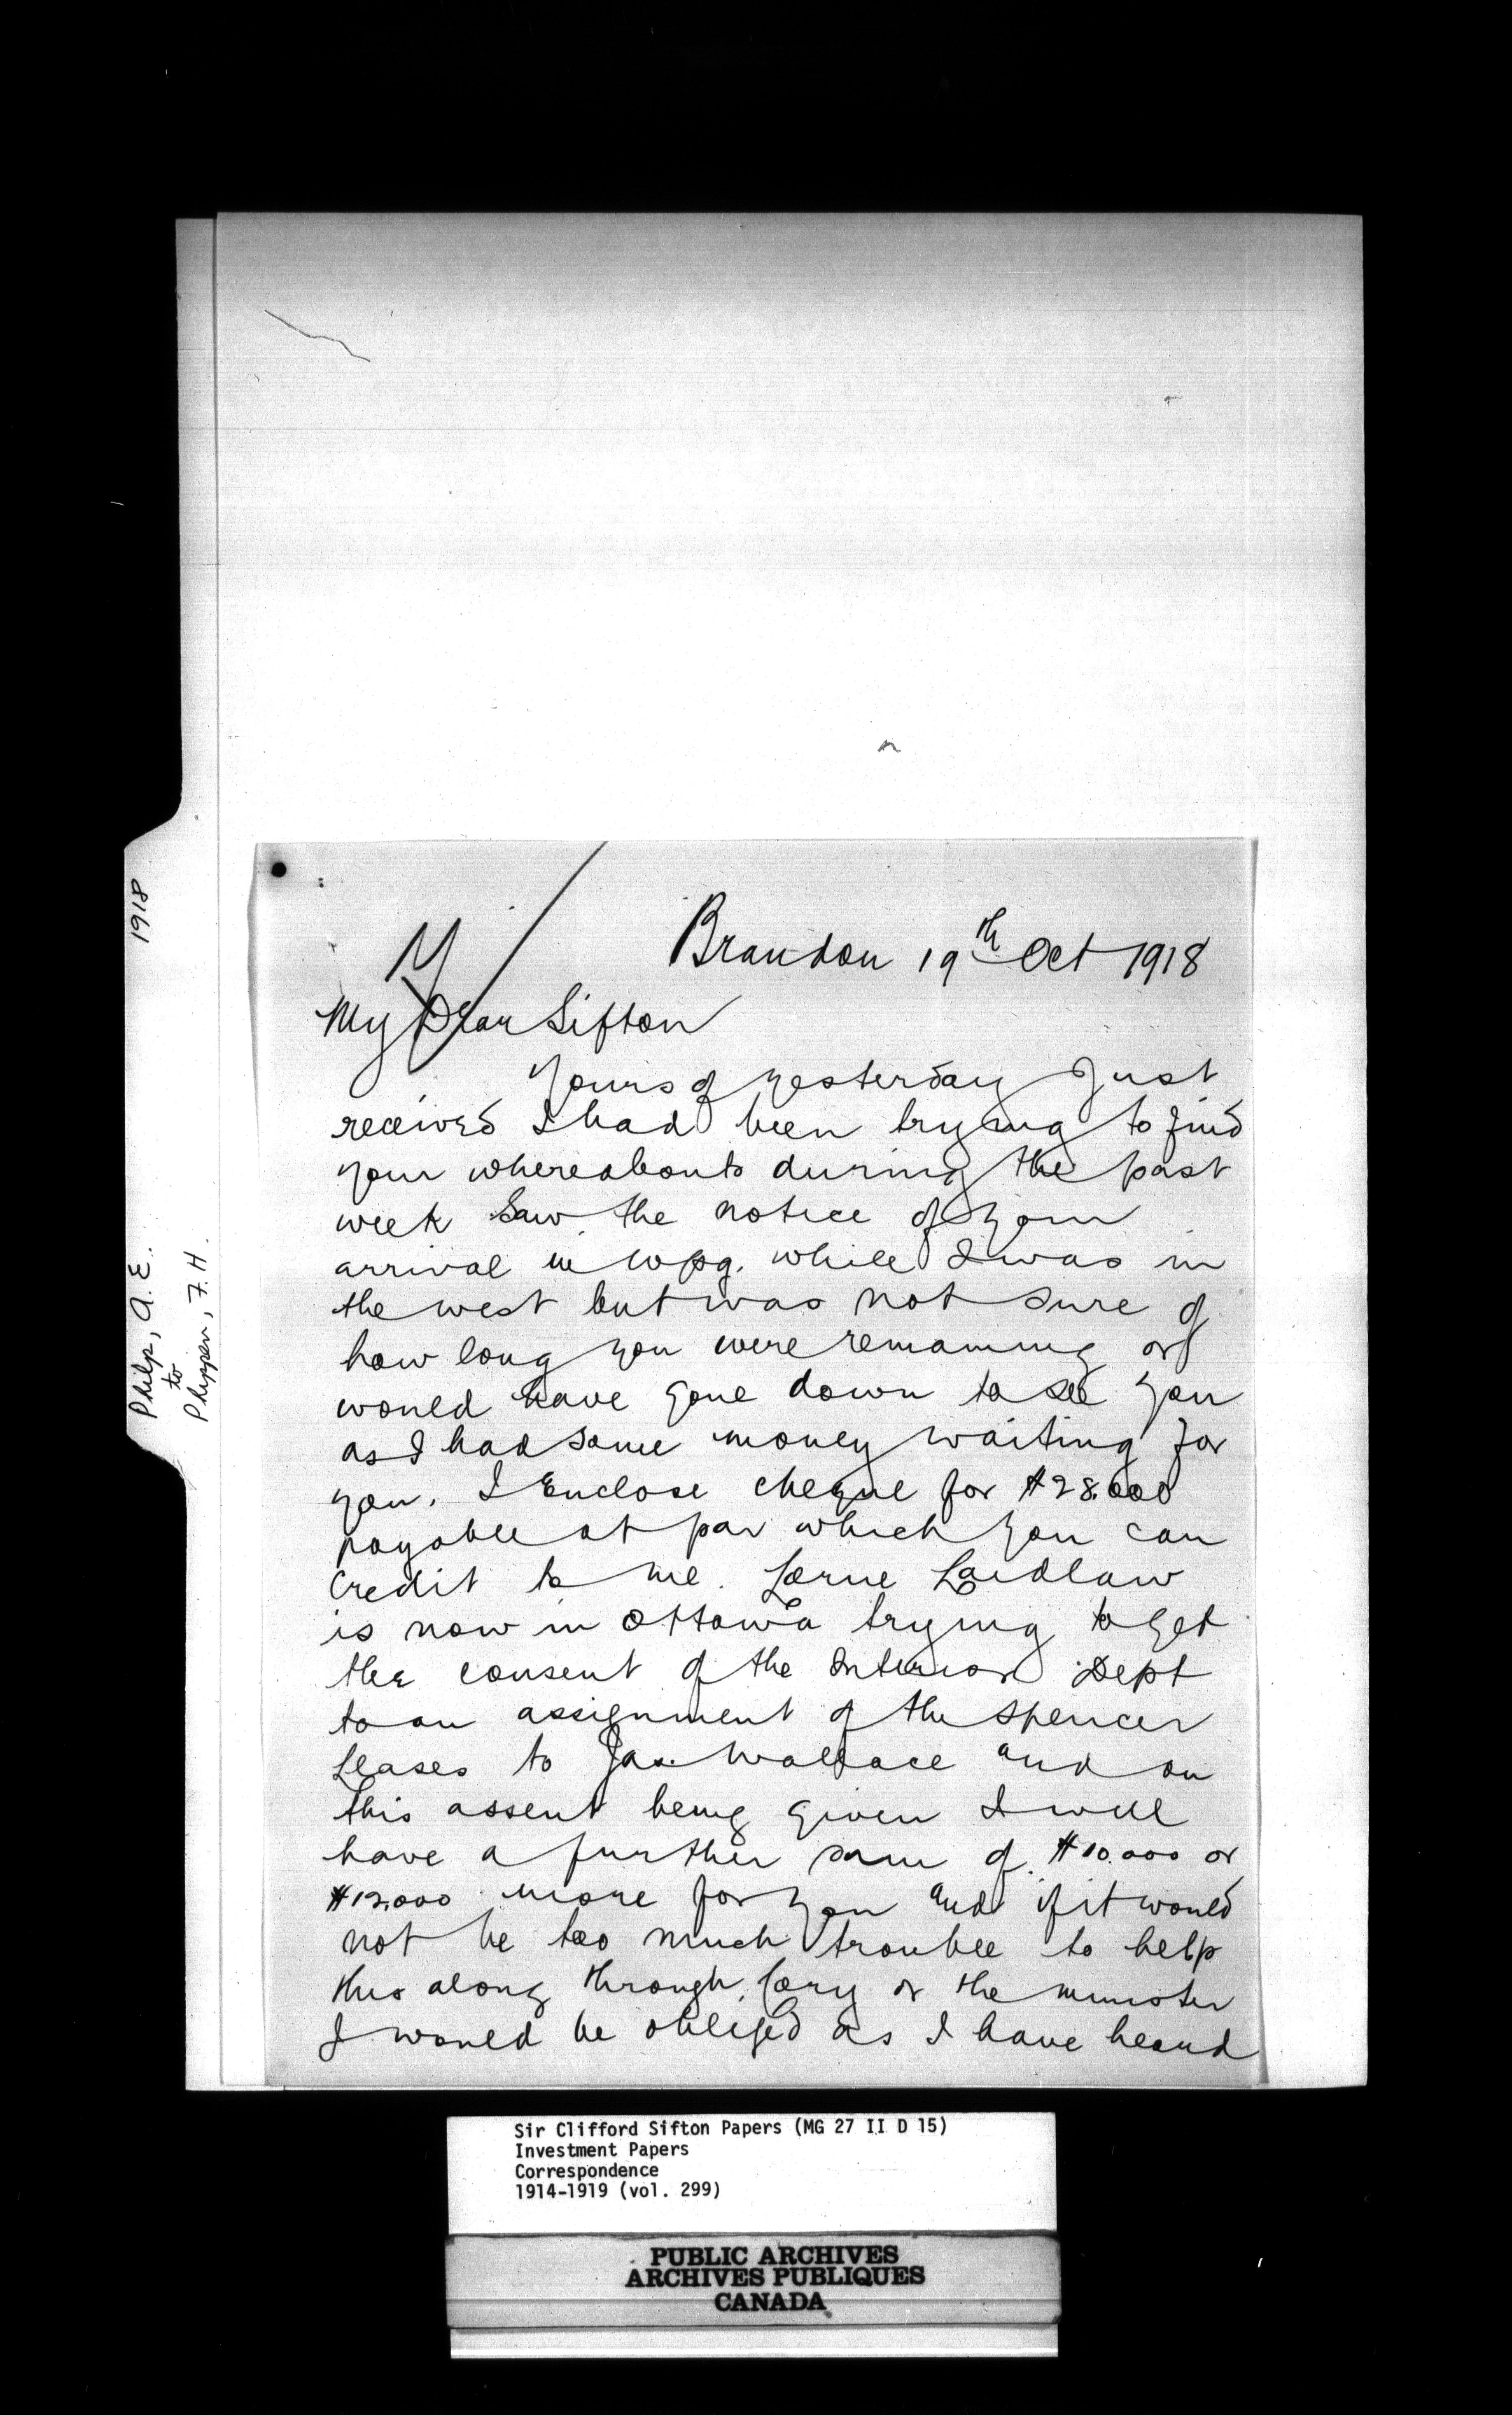 1918
Philp, A. E.
to
Phippen, F. H.
Brandon 19th Oct 1918
My Dear Sifton
Yours of yesterday Just
received I had been trying to find
your whereabouts during the past
week Saw the notice of your
arrival in Wpg. while I was in
the west but was not sure of
how long you were remaining or
would have gone down to see you
as I had some money waiting for
you. I Enclose cheque for $28.000
payable at par which you can
Credit to me. Lorne Laidlaw
is now in Ottawa trying to get
the consent of the Interior Dept
to an assignment of the Spencer
Leases to Jas. Wallace and on
this assent being given I will
have a further sum of $10.000 or
$12.000 more for you and if it would
not be too much trouble to help
this along through Cory or the minister
I would be obliged as I have heard
Sir Clifford Sifton Papers (MG 27 II D 15)
Investment Papers
Correspondence
1914-1919 (vol. 299)
PUBLIC ARCHIVES
ARCHIVES PUBLIQUES
CANADA